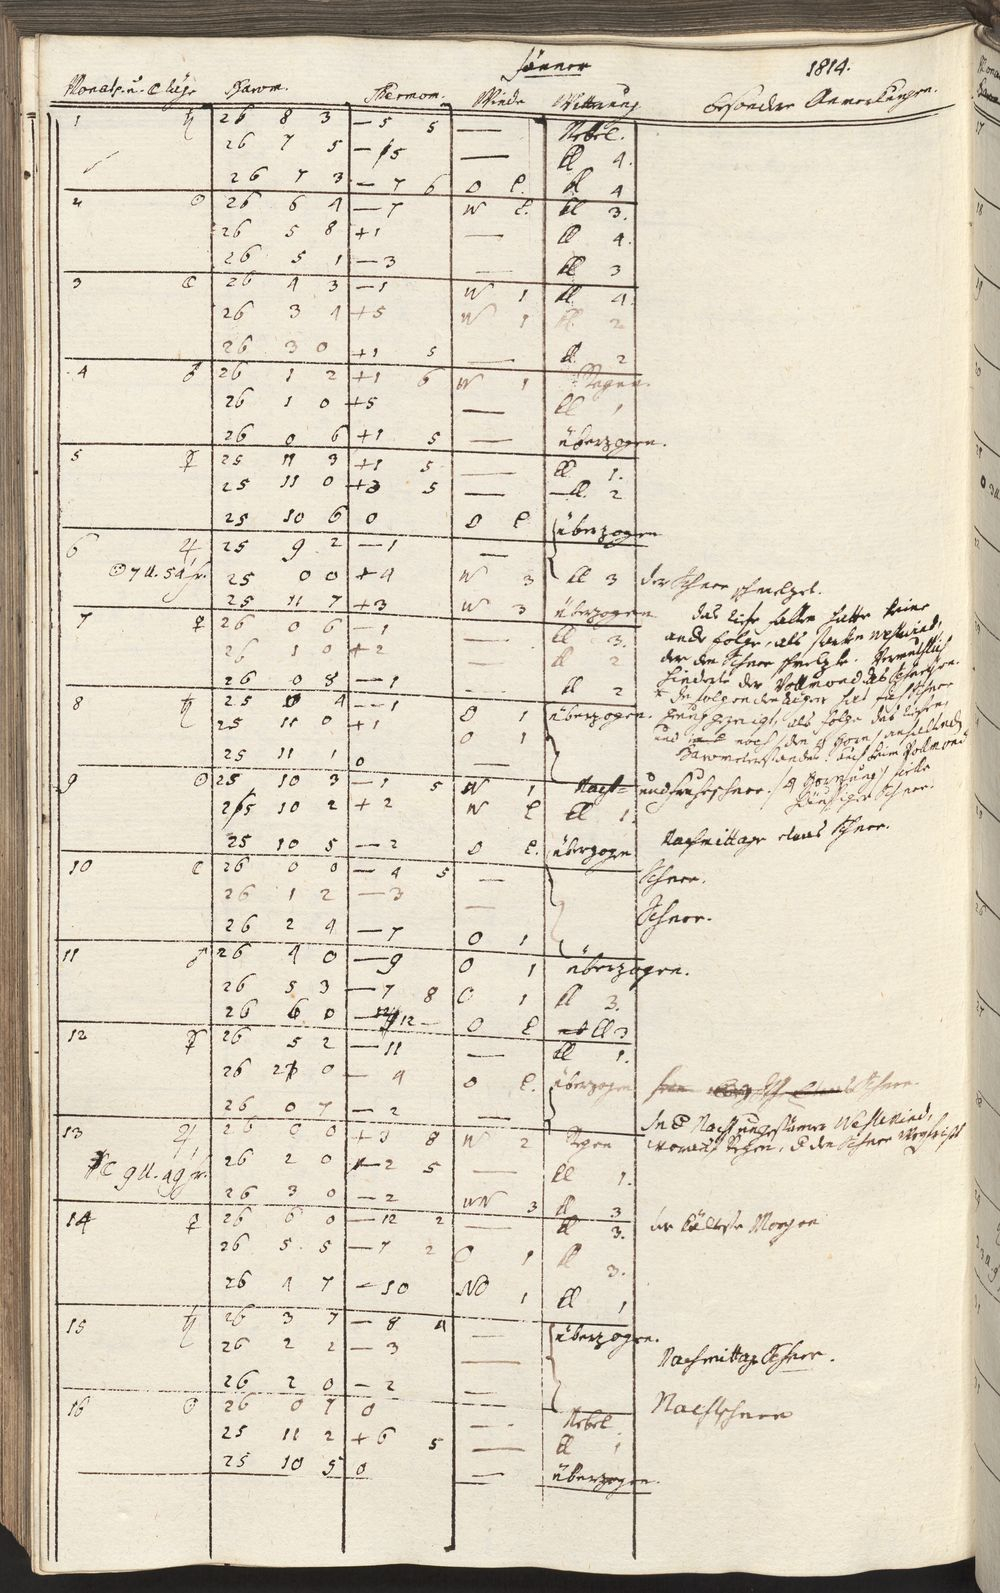 Jänner 1814.
Monats- u. ☾ täge Barom. Thermom. Winde Witterung besondere Anmerkungen.
1 ♄ 26 8 3 — 5 5 — Nebel.
26 7 5 — 5 — ll 4.
26 7 3 — 7 6 O l. ll 4
2 ☉ 26 6 4 — 7 W l. ll 3.
26 5 8 +1 — ll 4.
26 5 1 — 3 — ll 3
3 ☾ 26 4 3 — 1 W 1 ll 4.
26 3 4 +5 W 1 ll 2
26 3 0 +1 5 — ll. 2
4 ♂ 26 1 2 +1 6 W 1 Regen.
26 1 0 +5 — ll 1
26 0 6 +1 5 — überzogen.
5 ☿ 25 11 3 +1 5 — ll 1.
25 11 0 +3 5 — ll. 2
25 10 6 0 O l überzogen
6 ♃ 25 9 2 — 1 —
☉ 7 U. 5 A fr. 25 0 0 +4 W 3 ll 3 der Schnee schmelzet.
25 11 7 +3 W 3 überzogen das tiefe fallen hatte keine
7 ♀ 26 0 6 — 1 — ll 3. ande folge, als starken Westwind,
26 1 0 +2 — ll 2 der den Schnee schmelzte. Vermuthlich
26 0 8 — 1 — ll 2 hinderte der Vollmond das Schneyen.
8 ♄ 25 0 4 — 1 O 1 überzogen.
25 11 0 +1 O 1
25 11 1 0
9 ☉ 25 10 3 — 1 5 W 1 Nacht- und fruheschnee.
25 10 2 +2 W l ll 1.
25 10 5 — 2 O l. überzogen Nachmittage etwas Schnee.
10 ☾ 26 0 0 — 4 5 — Schnee.
26 1 2 — 3 —
26 2 4 — 7 O 1 Schnee.
11 ♂ 26 4 0 — 9 O 1 überzogen.
26 5 3 — 7 8 O 1 ll 3.
26 6 0 — 12 — O l ll 3
12 ☿ 26 5 2 — 11 — ll 1.
26 2 0 — 4 O l. überzogen Schnee.
26 0 7 — 2 — In d Nacht ungestümer Westwind,
13 ♃ 26 0 0 +3 8 W 2 Regen worauf Regen, d den Schnee
☾ 9 U. 49 fr. 26 2 0 — 2 5 — ll 1.
26 3 0 — 2 WN 3 ll 3
14 ♀ 26 6 0 — 12 2 — ll 3. der kälteste Morgen
26 5 5 — 7 2 O 1 ll 3.
26 4 7 — 10 NO 1 ll 1
15 ♄ 26 3 7 — 8 4 — überzogen.
26 2 2 — 3 — Nachmittag Schnee.
26 2 0 — 2 —
16 ☉ 26 0 7 0 — Nebel Nachtschnee
25 11 2 +6 5 — ll 1
25 10 5 0 — überzogen.